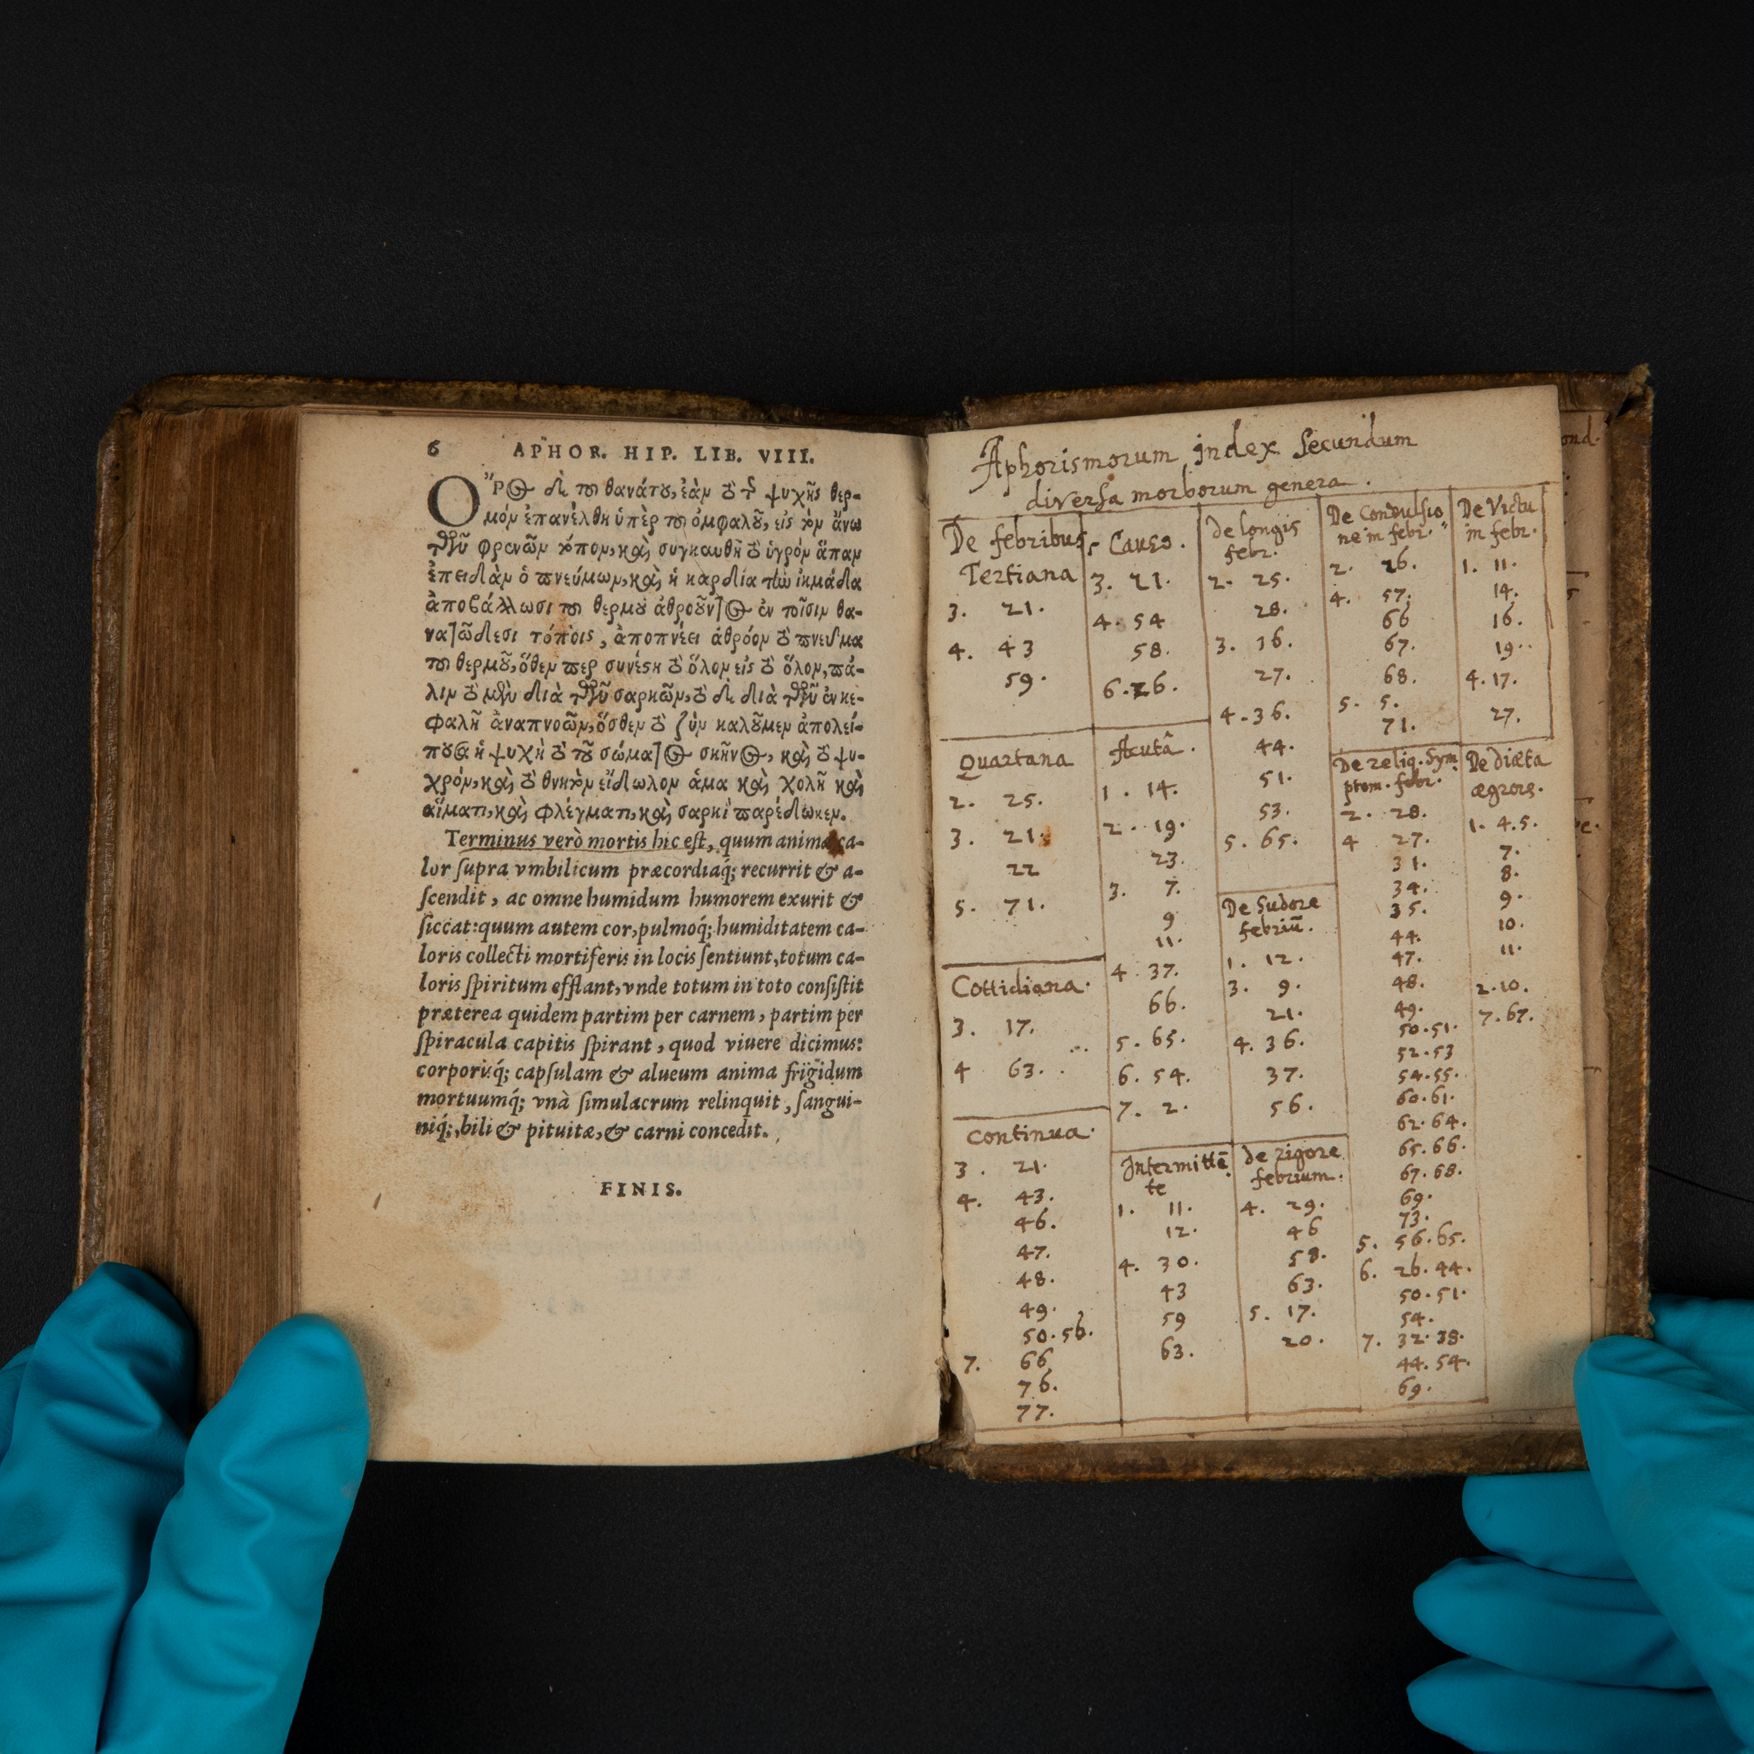 6 APHOR. HIP. LIB. VIII.
Ὅρος δὲ τοῦ θανάτου, ἐὰν τὸ τῆς ψυχῆς θερ-
μὸν ἐπανέλθῃ ὑπὲρ τοῦ ὀμφαλοῦ, εἰς τὸν ἄνω
τῶν φρενῶν τόπον, καὶ συγκαυθῇ τὸ ὑγρὸν ἅπαν
ἐπειδὰν ὁ πνεύμων, καὶ ἡ καρδία τὴν ἰκμάδα
ἀποβάλλωσι τοῦ θερμοῦ ἀθροῦντος ἐν τοῖσιν θα-
νατώδεσι τόποις, ἀποπνέει ἀθρόον τὸ πνεῦμα
τοῦ θερμοῦ, ὅθεν περ συνέστη τὸ ὅλον εἰς τὸ ὅλον, πά-
λιν τὸ μὲν διὰ τῶν σαρκῶν, τὸ δὲ διὰ τῶν ἐν κε-
φαλῇ ἀναπνοῶν, ὅσθεν τὸ ζῆν καλοῦμεν ἀπολεί-
πουσα ἡ ψυχὴ τὸ τοῦ σώματος σκῆνος, καὶ τὸ ψυ-
χρὸν, καὶ τὸ θνητὸν εἴδωλον ἅμα καὶ χολῇ καὶ
αἵματι, καὶ φλέγματι, καὶ σαρκὶ παρέδωκεν.
Terminus verò mortis hic est, quum animæ ca-
lor supra vmbilicum præcordiaq́; recurrit & a-
scendit, ac omne humidum humorem exurit &
siccat: quum autem cor, pulmoq́; humiditatem ca-
loris collecti mortiferis in locis sentiunt, totum ca-
loris spiritum efflant, vnde totum in toto consistit
præterea quidem partim per carnem, partim per
spiracula capitis spirant, quod viuere dicimus:
corporisq́; capsulam & alueum anima frigidum
mortuumq́; vnà simulacrum relinquit, sangui-
niq́;, bili & pituitæ, & carni concedit.
FINIS.
Aphorismorum index secundum
diversa morborum genera.
De febribus
Tertiana
3. 21.
4. 43
59.
Quartana
2. 25.
3. 21.
22
5. 71.
Cottidiana.
3. 17.
4 63.
Continua.
3. 21.
4. 43.
46.
47.
48.
49.
50. 56.
7. 66
76.
77.
Causo.
3. 21.
4. 54
58.
6. 26.
Acutâ.
1. 14.
2. 19.
23.
3. 7.
9
11.
4. 37.
66.
5. 65.
6. 54.
7. 2.
Intermittē
te
1. 11.
12.
4. 30.
43
59
63.
de longis
febr.
2. 25.
28.
3. 16.
27.
4. 36.
44.
51.
53.
5. 65.
De Sudore
febriū.
1. 12.
3. 9.
21.
4. 36.
37.
56.
de rigore
febrium.
4. 29.
46
58.
63.
5. 17.
20.
De Convulsio
ne in febr.
2. 26.
4. 57.
66
67.
68.
5. 5.
71.
De reliq. Sym
ptom. febr.
2. 28.
4 27.
31.
34.
35.
44.
47.
48.
49.
50. 51.
52. 53
54. 55.
60. 61.
62. 64.
65. 66.
67. 68.
69.
73.
5. 56. 65.
6. 26. 44.
50. 51.
54.
7. 32. 38.
44. 54.
69.
De Victu
in febr.
1. 11.
14.
16.
19.
4. 17.
27.
De diæta
ægrors.
1. 4. 5.
7.
8.
9.
10.
11.
2. 10.
7. 67.